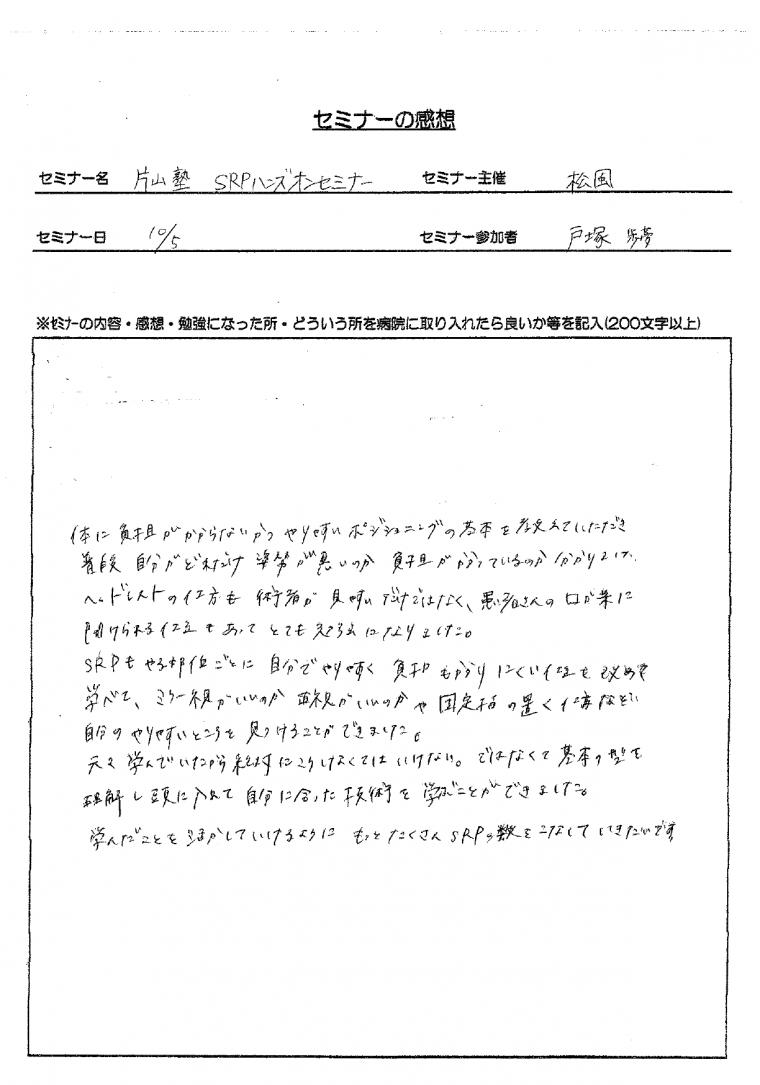 セミナーの感想
セミナー名 片山塾 SRPハンズオンセミナー セミナー主催 松風
セミナー日 10/5 セミナー参加者 戸塚 歩夢
※セミナーの内容・感想・勉強になった所・どういう所を病院に取り入れたら良いか等を記入(200文字以上)
体に負担がかからないかつやりやすいポジショニングの基本を教えていただき
普段自分がどれだけ姿勢が悪いのか負担がかかっているのか分かりました。
ヘッドレストの仕方も術者が見やすいだけではなく、患者さんの口が楽に
開けられる位置もあってとても勉強になりました。
SRPもやる部位ごとに自分でやりやすく負担もかかりにくい位置を改めて
学べて、ミラー視がいいのか直視がいいのかや固定指の置く位置など
自分のやりやすいところを見つけることができました。
元々学んでいたから絶対にこうしなくてはいけない。ではなくて基本の型を
理解し頭に入れて自分に合った技術を学ぶことができました。
学んだことを活かしていけるようにもっとたくさんSRPの数をこなしていきたいです